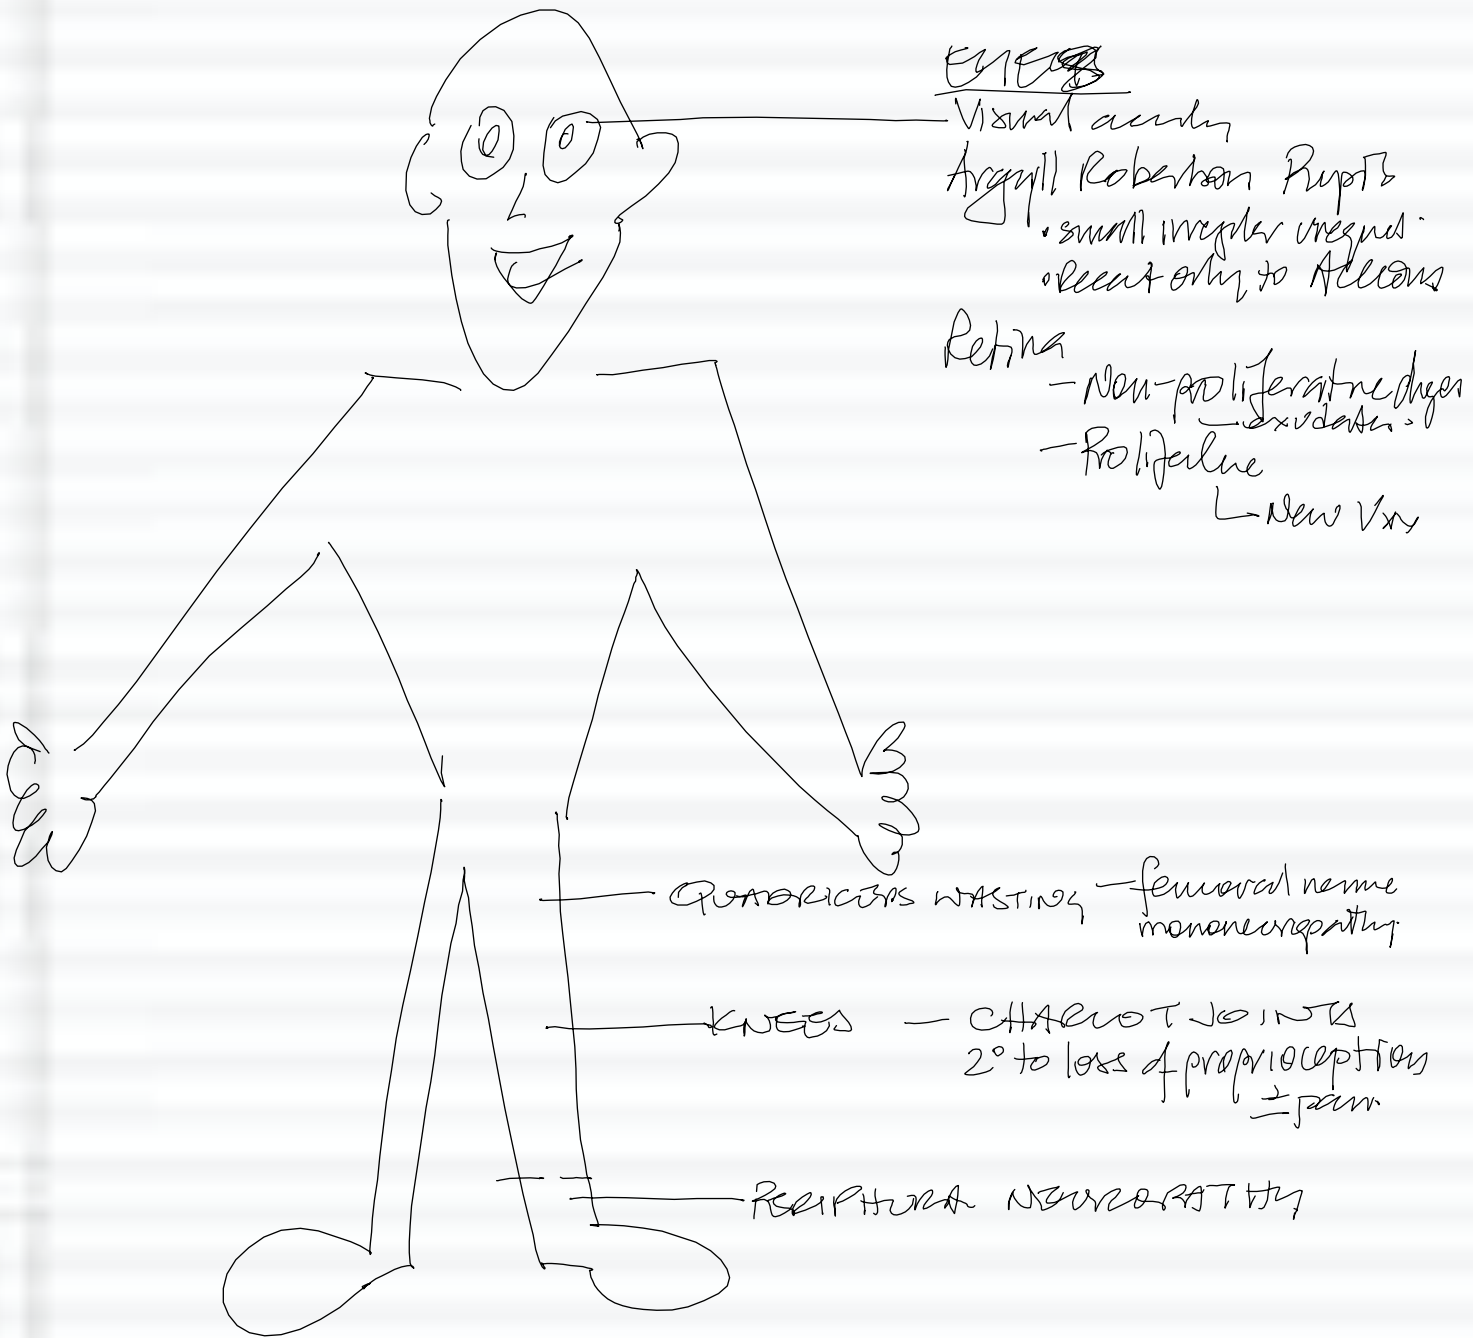 EYES
Visual acuity
Argyll Robertson Pupils
• small irregular unequal.
• React only to Accoms
Retina
- Non-proliferative changes
- exudates.
- Proliferative
New Vx
QUADRICEPS WASTING - femoral nerve
mononeuropathy.
KNEES - CHARCOT JOINTS
2° to loss of proprioception
± pain.
PERIPHERAL NEUROPATHY